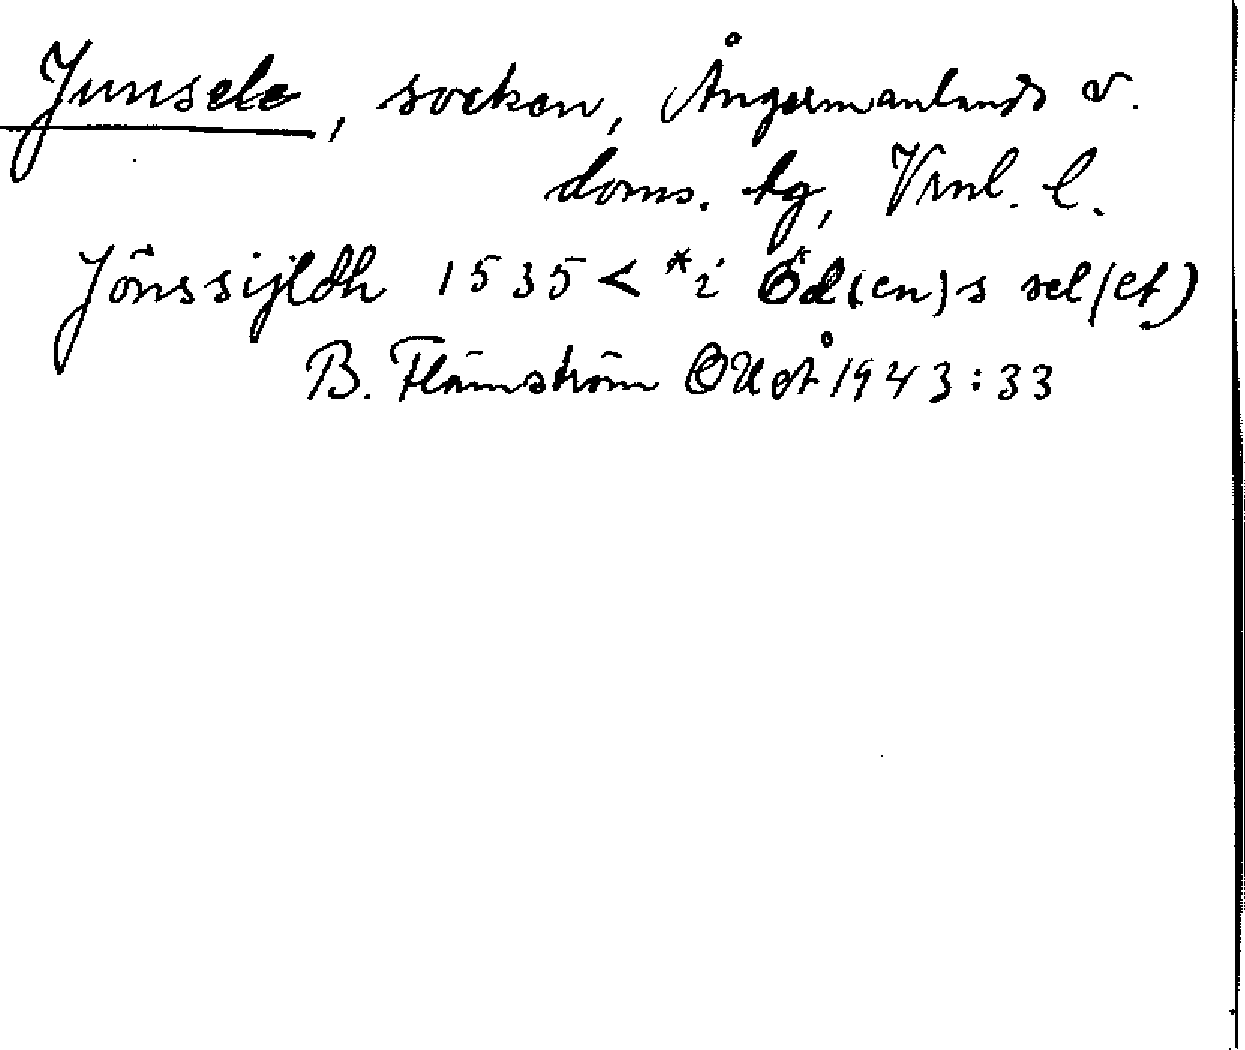 Junsele, socken, Ångermanlands v.
doms. tg, Vrnl. l.
Jönssijldh 1535 < *i Öd(en)s sel(et)
B. Flemström OUÅ 1943:33